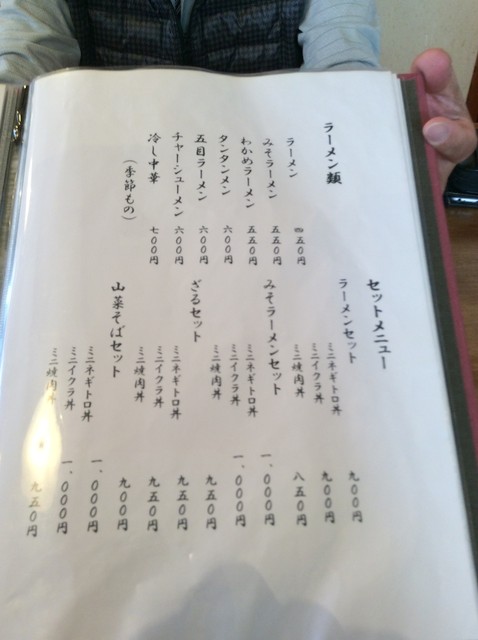 ラーメン類
ラーメン 四五〇円
みそラーメン 五五〇円
わかめラーメン 五五〇円
タンタンメン 六〇〇円
五目ラーメン 六〇〇円
チャーシューメン 六〇〇円
冷し中華 七〇〇円
(季節もの)
セットメニュー
ラーメンセット
ミニネギトロ丼 九〇〇円
ミニイクラ丼 九〇〇円
ミニ焼肉丼 八五〇円
みそラーメンセット
ミニネギトロ丼 一、〇〇〇円
ミニイクラ丼 一、〇〇〇円
ミニ焼肉丼 九五〇円
ざるセット
ミニネギトロ丼 九五〇円
ミニイクラ丼 九五〇円
ミニ焼肉丼 九〇〇円
山菜そばセット
ミニネギトロ丼 一、〇〇〇円
ミニイクラ丼 一、〇〇〇円
ミニ焼肉丼 九五〇円